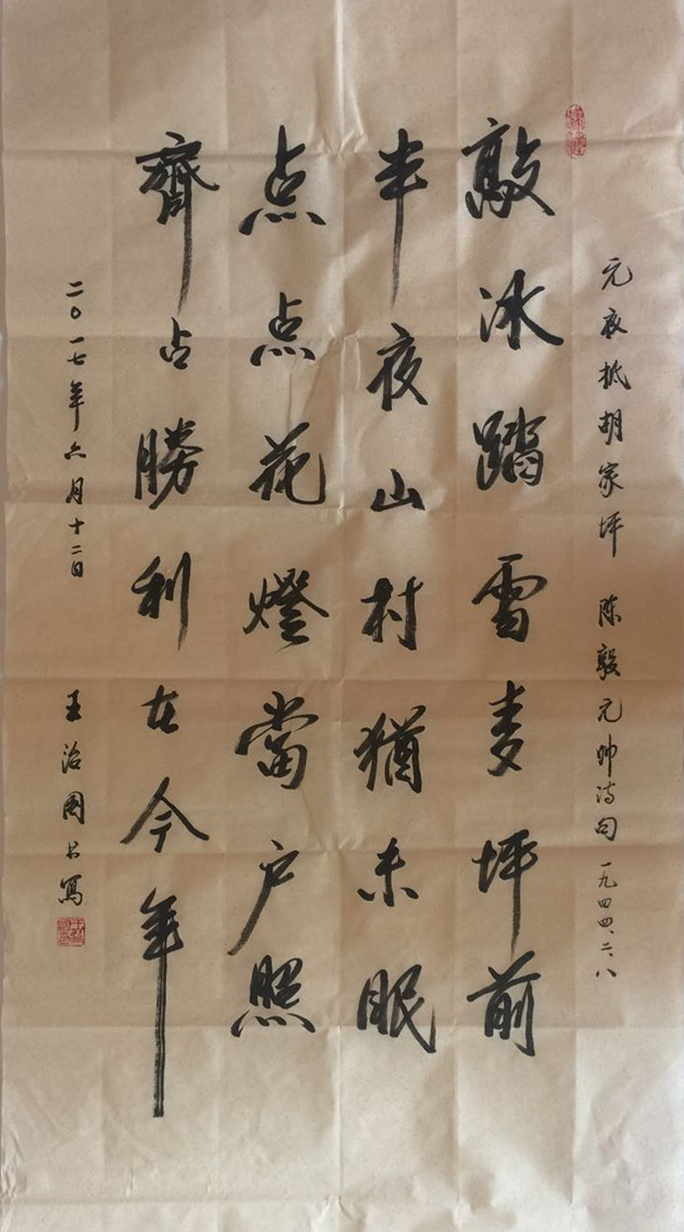 元夜抵胡家坪 陈毅元帅诗句 一九四四、二、八
敲冰踏雪麦坪前
半夜山村猶未眠
点点花燈當户照
齊占勝利在今年
二〇一七年六月十二日 王治國书寫